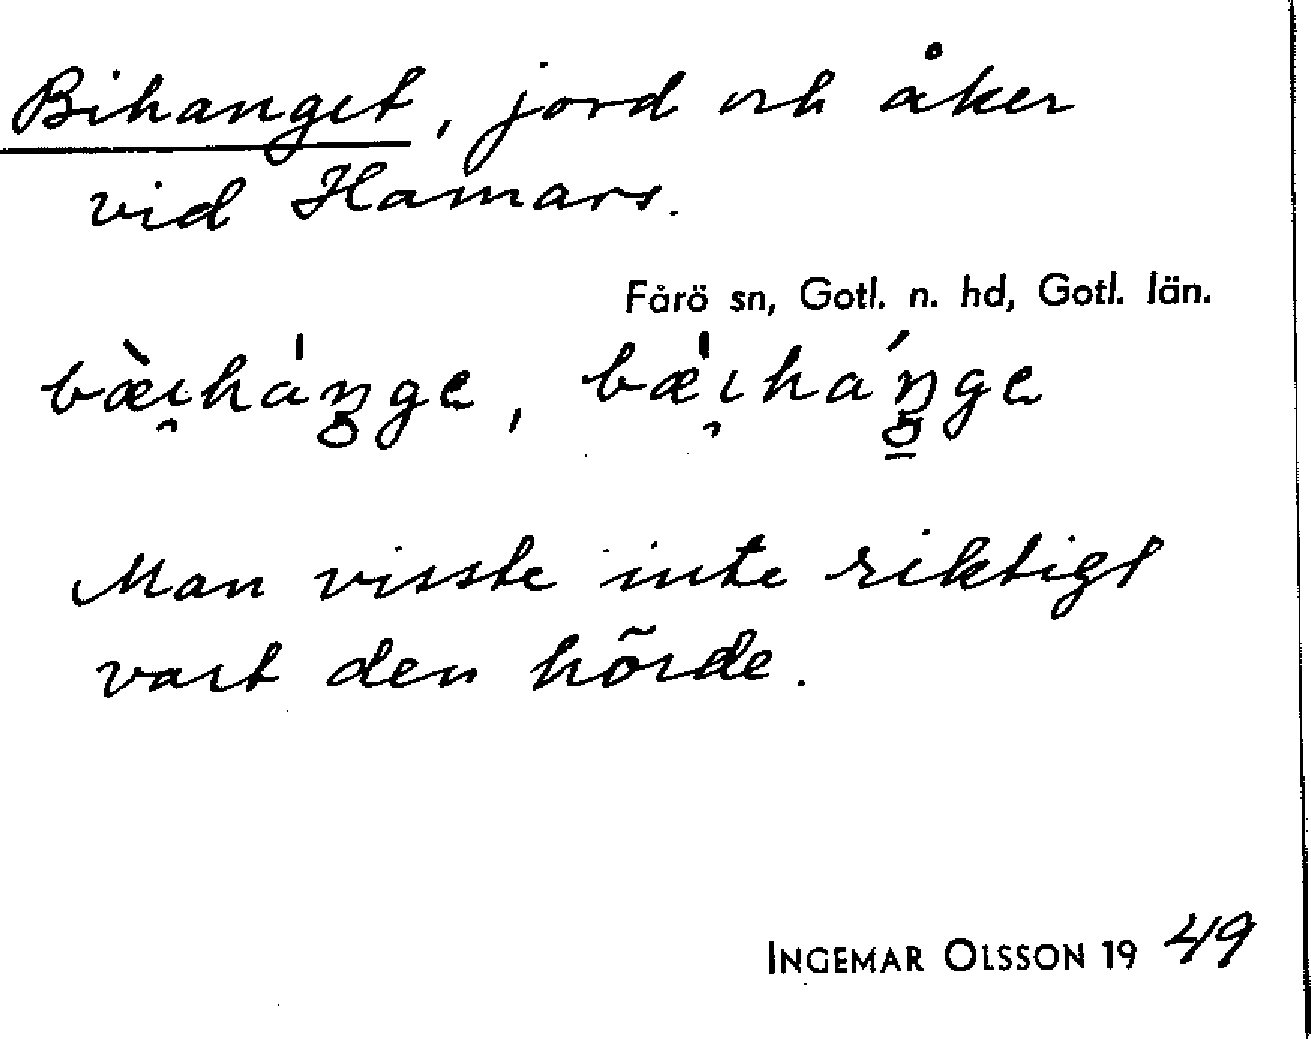 Bihanget, jord och åker
vid Hamars.
Fårö sn, Gotl. n. hd, Gotl. län.
bæ̀i̯hàŋge, bæ̀i̯háŋge
Man visste inte riktigt
vart den hörde.
INGEMAR OLSSON 1949